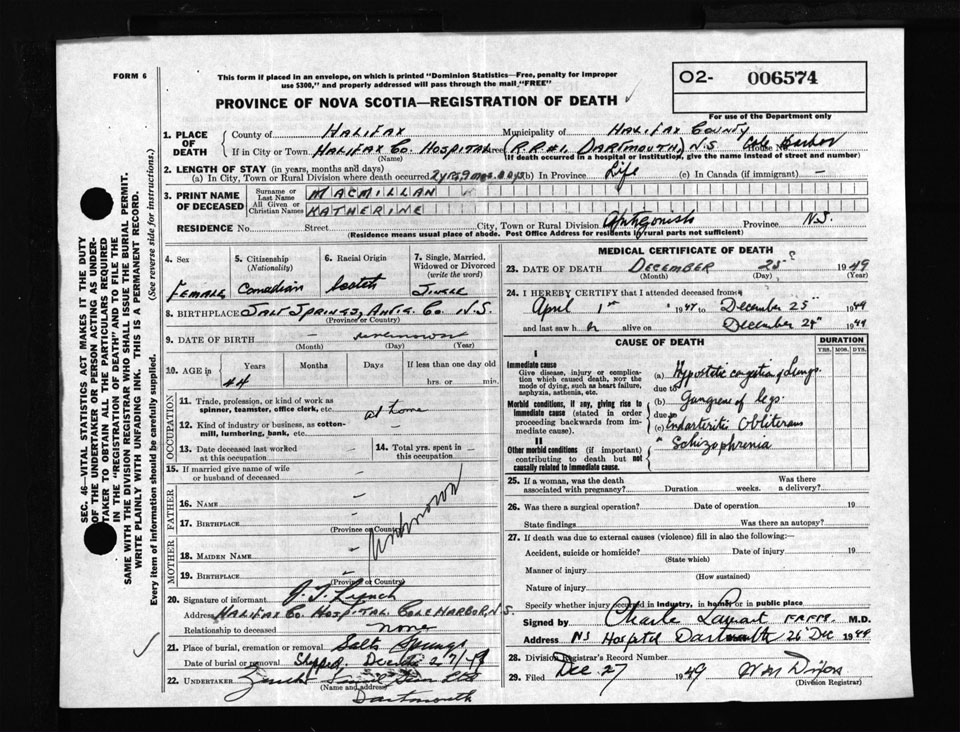 FORM 6
This form if placed in an envelope, on which is printed "Dominion Statistics—Free, penalty for improper
use $300," and properly addressed will pass through the mail "FREE"
O2- 006574
PROVINCE OF NOVA SCOTIA—REGISTRATION OF DEATH
For use of the Department only
1. PLACE OF DEATH
County of HALIFAX Municipality of HALIFAX COUNTY
If in City or Town HALIFAX CO. HOSPITAL R.R #1. DARTMOUTH, N.S Cole Harbor
(Name) (If death occurred in a hospital or institution, give the name instead of street and number)
2. LENGTH OF STAY (in years, months and days)
(a) In City, Town or Rural Division where death occurred 2 yrs 9 mos (b) In Province Life (c) In Canada (if immigrant) —
3. PRINT NAME OF DECEASED
Surname or Last Name MACMILLAN
All Given or Christian Names KATHERINE
RESIDENCE No. Street City, Town or Rural Division Antigonish Province N.S.
(Residence means usual place of abode. Post Office Address for residents in rural parts not sufficient)
4. Sex
FEMALE
5. Citizenship
(Nationality)
Canadian
6. Racial Origin
Scotch
7. Single, Married,
Widowed or Divorced
(write the word)
Single
8. BIRTHPLACE SALT SPRINGS, ANTIG. CO N.S.
(Province or Country)
9. DATE OF BIRTH unknown
(Month) (Day) (Year)
10. AGE in Years Months Days If less than one day old
44 hrs. or min.
OCCUPATION
11. Trade, profession, or kind of work as
spinner, teamster, office clerk, etc. at home
12. Kind of industry or business, as cotton-
mill, lumbering, bank, etc. —
13. Date deceased last worked
at this occupation —
14. Total yrs. spent in
this occupation —
15. If married give name of wife
or husband of deceased —
FATHER
16. Name —
17. Birthplace —
(Province or Country)
unknown
MOTHER
18. Maiden Name —
19. Birthplace —
(Province or Country)
20. Signature of informant
Address HALIFAX CO. HOSPITAL. COLE HARBOR, N.S.
Relationship to deceased none
21. Place of burial, cremation or removal Salts Springs
Date of burial or removal Dec 27/49
22. Undertaker
(Name and address)
Dartmouth
MEDICAL CERTIFICATE OF DEATH
23. DATE OF DEATH DECEMBER 25 1949
(Month) (Day) (Year)
24. I HEREBY CERTIFY that I attended deceased from
April 1st 1947 to December 25 1949
and last saw h alive on December 24 1949
CAUSE OF DEATH
DURATION
YRS. MOS. DYS.
I
Immediate cause
Give disease, injury or complica-
tion which caused death, NOT the
mode of dying, such as heart failure,
asphyxia, asthenia, etc.
(a) Hypostatic congestion of Lungs.
due to
Morbid conditions, if any, giving rise to
immediate cause (stated in order
proceeding backwards from im-
mediate cause).
(b) Gangrene of legs
due to
(c) Endarteritis Obliterans
II
Other morbid conditions (if important)
contributing to death but not
causally related to immediate cause.
Schizophrenia
25. If a woman, was the death
associated with pregnancy? Duration weeks. Was there
a delivery?
26. Was there a surgical operation? Date of operation 19
State findings Was there an autopsy?
27. If death was due to external causes (violence) fill in also the following:—
Accident, suicide or homicide? Date of injury 19
(State which)
Manner of injury
(How sustained)
Nature of injury
Specify whether injury occurred in industry, in home or in public place
Signed by M.D.
Address NS Hospital Dartmouth 26 Dec 1949
28. Division Registrar's Record Number
29. Filed Dec 27 1949
(Division Registrar)
SEC. 46—VITAL STATISTICS ACT MAKES IT THE DUTY
OF THE UNDERTAKER OR PERSON ACTING AS UNDER-
TAKER TO OBTAIN ALL THE PARTICULARS REQUIRED
IN THE "REGISTRATION OF DEATH" AND TO FILE THE
SAME WITH THE DIVISION REGISTRAR WHO SHALL ISSUE THE BURIAL PERMIT.
WRITE PLAINLY WITH UNFADING INK. THIS IS A PERMANENT RECORD.
Every item of information should be carefully supplied. (See reverse side for instructions.)